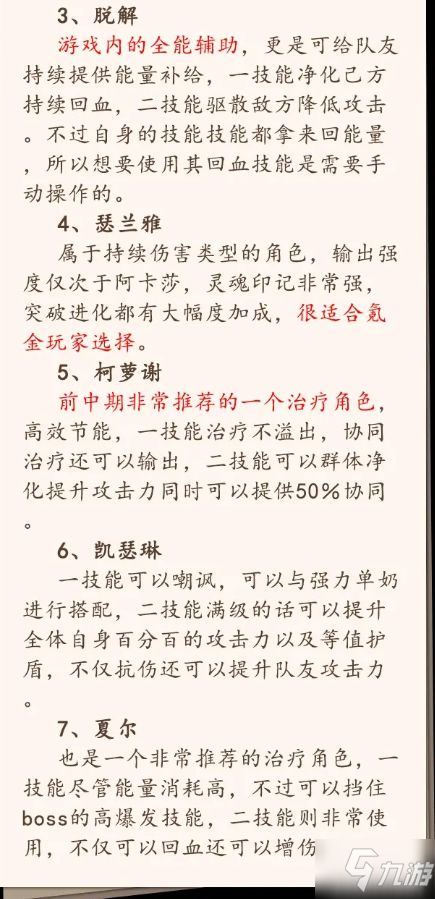 3、脱解
游戏内的全能辅助，更是可给队友
持续提供能量补给，一技能净化己方
持续回血，二技能驱散敌方降低攻击
。不过自身的技能技能都拿来回能量
，所以想要使用其回血技能是需要手
动操作的。
4、瑟兰雅
属于持续伤害类型的角色，输出强
度仅次于阿卡莎，灵魂印记非常强，
突破进化都有大幅度加成，很适合氪
金玩家选择。
5、柯萝谢
前中期非常推荐的一个治疗角色，
高效节能，一技能治疗不溢出，协同
治疗还可以输出，二技能可以群体净
化提升攻击力同时可以提供50%协同
。
6、凯瑟琳
一技能可以嘲讽，可以与强力单奶
进行搭配，二技能满级的话可以提升
全体自身百分百的攻击力以及等值护
盾，不仅抗伤还可以提升队友攻击力
。
7、夏尔
也是一个非常推荐的治疗角色，一
技能尽管能量消耗高，不过可以挡住
boss的高爆发技能，二技能则非常使
用，不仅可以回血还可以增伤
九游